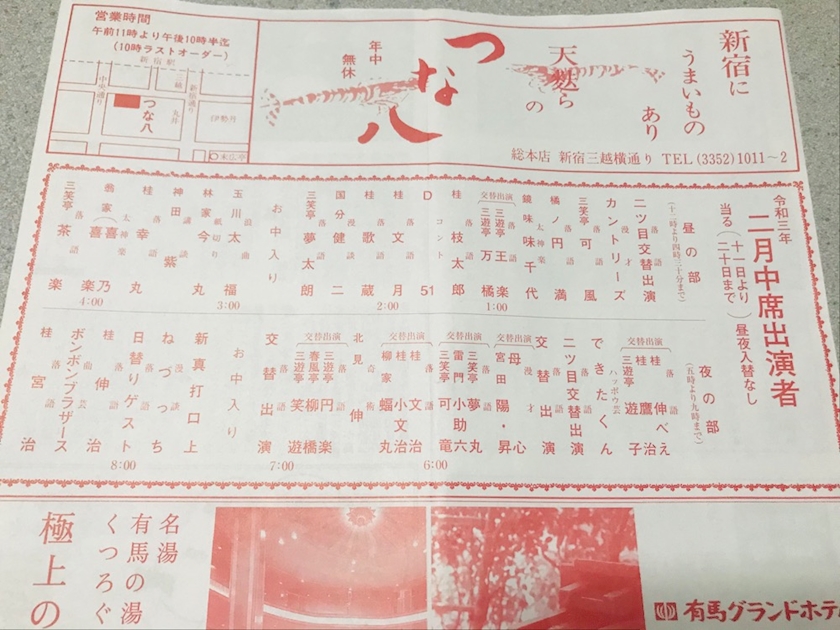 新宿に
うまいもの
あり
天麩ら
の
つな八
年中
無休
総本店 新宿三越横通り TEL(3352)1011~2
営業時間
午前11時より午後10時半迄
(10時ラストオーダー)
新宿駅
中央通り
三越
新宿通り
つな八
丸井
伊勢丹
末広亭
令和三年
二月中席出演者
当る(十一日より二十日まで)昼夜入替なし
昼の部
(十二時より四時三十分まで)
二ツ目交替出演
漫才 カントリーズ
落語 三笑亭可風
落語 橘ノ円満
太神楽 鏡味味千代
交替出演
落語 三遊亭王楽
三遊亭万橘
1:00
落語 桂枝太郎
コント D51
落語 桂文月
2:00
落語 桂歌蔵
漫談 国分健二
落語 三笑亭夢太朗
お中入り
浪曲 玉川太福
3:00
紙切り 林家今丸
講談 神田紫
落語 桂幸丸
太神楽 翁家喜楽
喜乃
4:00
落語 三笑亭茶楽
夜の部
(五時より九時まで)
交替出演
落語 桂伸べえ
桂鷹治
三遊亭遊子
ハッポウ芸 できたくん
二ツ目交替出演
交替出演
漫才 母心
宮田陽・昇
交替出演
落語 三笑亭夢丸
雷門小助六
三笑亭可竜
6:00
交替出演
落語 桂文治
桂小文治
柳家蝠丸
奇術 北見伸
交替出演
落語 三遊亭円楽
春風亭柳橋
三遊亭笑遊
7:00
交替出演
お中入り
新真打口上
漫談 ねづっち
落語 日替りゲスト
8:00
落語 桂伸治
曲芸 ボンボンブラザース
落語 桂宮治
名湯
有馬の湯
くつろぐ
極上の
有馬グランドホテ